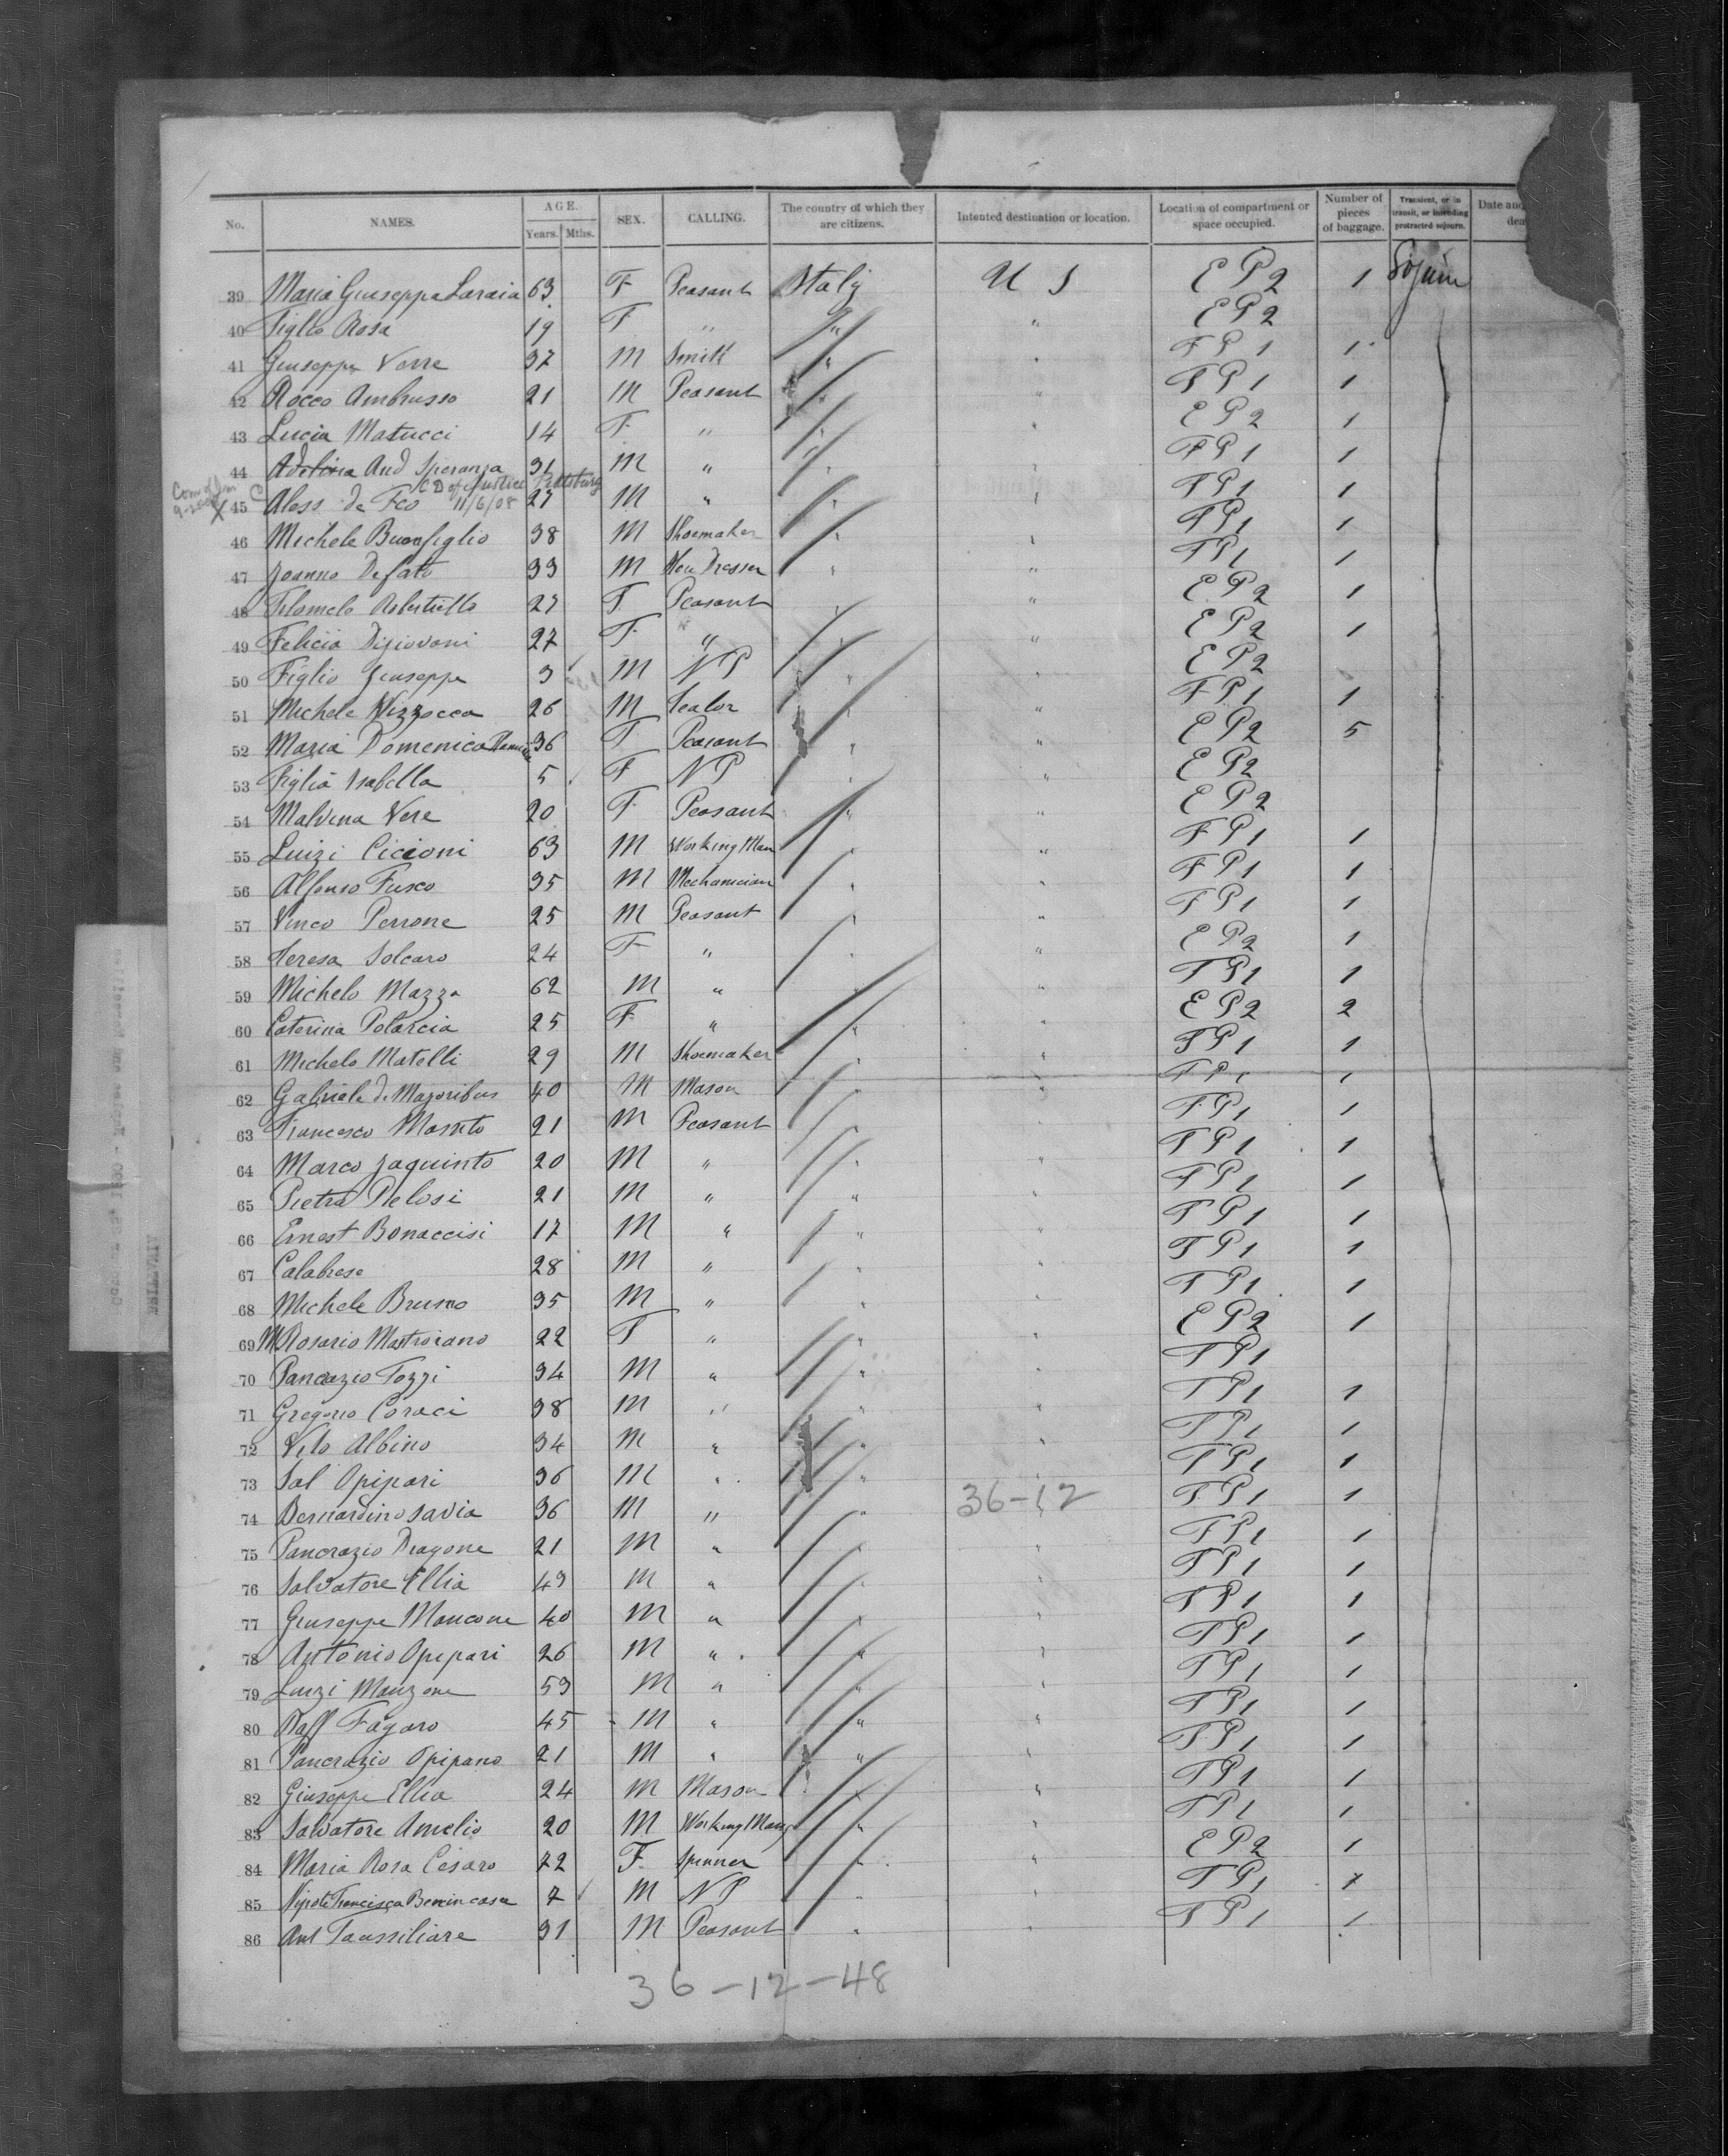 No. NAMES. AGE. Years. Mths. SEX. CALLING. The country of which they are citizens. Intented destination or location. Location of compartment or space occupied. Number of pieces of baggage. Transient, or in transit, or intending protracted sojourn. Date and
39 Maria Giuseppa Laraia 63 F Peasant Italy U S E P 2 1 Sojurn
40 Figlia Rosa 19 F " " " E P 2
41 Giuseppe Verre 37 M Smith " " F P 1 1
42 Rocco Ambrusso 21 M Peasant " " F P 1 1
43 Lucia Matucci 14 F " " " E P 2 1
44 Adelina And Speranza 31 M " " " F P 1 1
C D of Justice Pittsburg
45 C Aless de Feo 11/6/08 27 M " " " F P 1 1
46 Michele Buonfiglio 38 M Shoemaker " " F P 1 1
47 Joanno Defato 33 M Dresser " " F P 1 1
48 Filomela Robertiello 27 F Peasant " " E P 2 1
49 Felicia Digiovani 27 F " " " E P 2 1
50 Figlio Giuseppe 3 M N P " " E P 2
51 Michele Vizzocca 26 M " " F P 1 1
52 Maria Domenica 36 F Peasant " " E P 2 5
53 Figlia Isabella 5 F N P " " E P 2
54 Malvina Vere 20 F Peasant " " E P 2
55 Luizi Cicioni 63 M Working Man " " F P 1 1
56 Alfonso Fusco 35 M Mechanician " " F P 1 1
57 Vinco Perrone 25 M Peasant " " F P 1 1
58 Teresa Solcaro 24 F " " " E P 2 1
59 Michele Mazza 62 M " " " F P 1 1
60 Caterina Polarcia 25 F " " " E P 2 2
61 Michele Matelli 29 M Shoemaker " " F P 1 1
62 Gabriele De Mazoribus 40 M Mason " " F P 1 1
63 Francesco Massito 21 M Peasant " " F P 1 1
64 Marco Jaquinto 20 M " " " F P 1 1
65 Pietra Pelosi 21 M " " " F P 1 1
66 Ernest Bonaccisi 17 M " " " F P 1 1
67 Calabrese 28 M " " " F P 1 1
68 Michele Bruno 35 M " " " F P 1 1
69 M Rosario Mastroiano 22 F " " " E P 2 1
70 Pancrazio Tozzi 34 M " " " F P 1
71 Gregorio Coraci 38 M " " " F P 1 1
72 Vito Albino 34 M " " " F P 1 1
73 Sal Opipari 36 M " " " F P 1 1
74 Bernardino Savia 36 M " " 36-12 F P 1 1
75 Pancrazio Dragone 21 M " " " F P 1 1
76 Salvatore Ellia 49 M " " " F P 1 1
77 Giuseppe Mancone 40 M " " " F P 1 1
78 Antonio Opipari 26 M " " " F P 1 1
79 Luizi Manzone 53 M " " " F P 1 1
80 Raff Fagaro 45 M " " " F P 1 1
81 Pancrazio Opipano 21 M " " " F P 1 1
82 Giuseppe Ellia 24 M Mason " " F P 1 1
83 Salvatore Amelio 20 M Working Man " " F P 1 1
84 Maria Rosa Cesaro 22 F Spinner " " E P 2 1
85 Nipote Francisca Benincasa 7 M N P " " F P 1 1
86 Ant Taussiliare 31 M Peasant " " F P 1 1
36-12-48